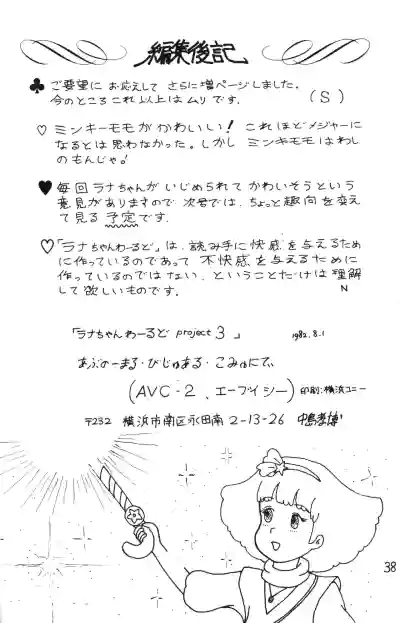 編集後記
♣ ご要望に お応えして さらに増ページしました。
今のところこれ以上はムリです。 (S)
♡ ミンキーモモがかわいい! これほどメジャーに
なるとは思わなかった。しかし ミンキーモモはわし
のもんじゃ!
♥ 毎回 ラナちゃんが いじめられて かわいそうという
意見がありますので 次号では、ちょっと趣向を変え
て見る 予定です。
♡「ラナちゃんわーるど」は、読み手に快感を与えるため
に作っているのであって 不快感を与えるために
作っているのではない、ということだけは理解
して欲しいものです。 N
「ラナちゃんわーるど project 3」 1982.8.1
あぶのーまる・びじゅある・こみゅにてぃ
(AVC-2、エーブイシー) 印刷:横浜ユニー
〒232 横浜市南区永田南 2-13-26 中島孝博
38